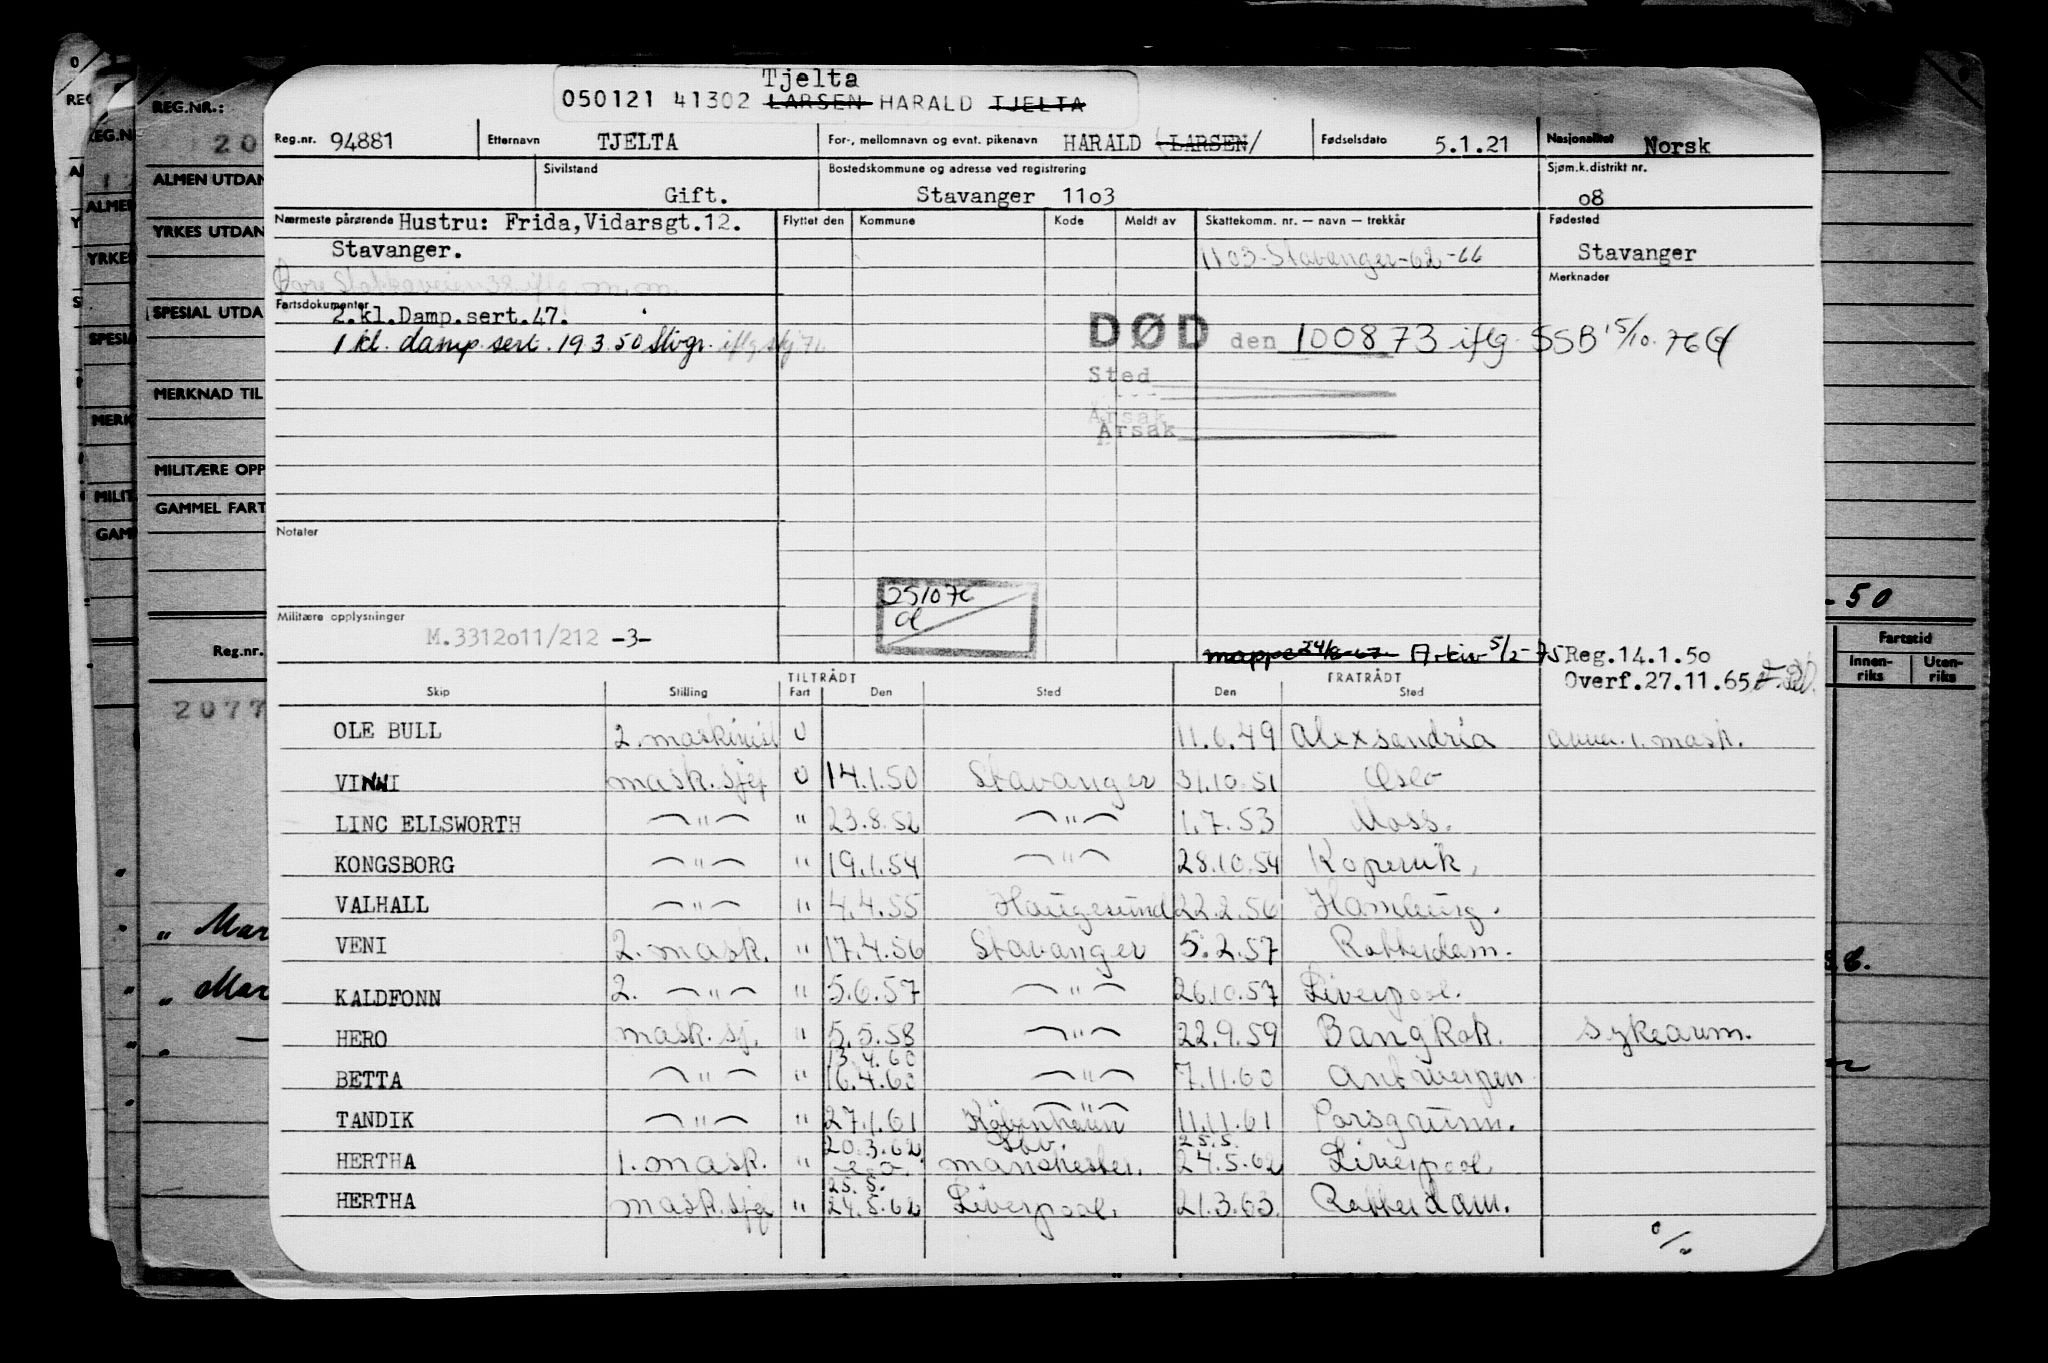 Tjelta
050121 41302 LARSEN HARALD TJELTA
Reg.nr. 94881 Etternavn TJELTA For-, mellomnavn og evnt. pikenavn HARALD (LARSEN/ Fødselsdato 5.1.21 Nasjonalitet Norsk
Sivilstand Gift. Bostedskommune og adresse ved registrering Stavanger 11o3 Sjøm.k.distrikt nr. o8
Nærmeste pårørende Hustru: Frida,Vidarsgt.12. Flyttet den Kommune Kode Meldt av Skattekomm. nr. — navn — trekkår Fødested
Stavanger. 1103-Stavanger-62-66 Stavanger
Merknader
Fartsdokumenter
2.kl.Damp.sert.47.
1 kl. damp.sert. 19.3.50 Stvgr. iflg skj 71
DØD den 100873 iflg. SSB 15/10.76
Sted
Årsak
Årsak
Notater
251076
Militære opplysninger M.3312o11/212 -3-
mappe 24/8-67 Arkiv 5/2-75 Reg.14.1.50
Overf.27.11.65
TILTRÅDT FRATRÅDT
Skip Stilling Fart Den Sted Den Sted
OLE BULL 2. maskinist U 11.6.49 Alexsandria anm. 1. mask.
VINNI mask.sjef U 14.1.50 Stavanger 31.10.51 Oslo
LINC ELLSWORTH —"— " 23.8.52 —"— 1.7.53 Moss.
KONGSBORG —"— " 19.1.54 —"— 28.10.54 Kopervik,
VALHALL —"— " 4.4.55 Haugesund 22.2.56 Hamburg.
VENI 2. mask. " 17.4.56 Stavanger 5.2.57 Rotterdam.
KALDFONN 2. —"— " 5.6.57 —"— 26.10.57 Liverpool.
HERO mask.sj. " 5.5.58 —"— 22.9.59 Bangkok. sykeavm.
13.4.60
BETTA —"— " 16.4.60 —"— 7.11.60 Antwerpen
TANDIK —"— " 27.1.61 København 11.11.61 Porsgrunn.
20.3.62 25.5.
HERTHA 1. mask. " Manchester. 24.5.62 Liverpool.
25.5.
HERTHA mask.sjef " 24.5.62 Liverpool. 21.3.63. Rotterdam.
REG.NR.:
20
ALMEN UTDAN
YRKES UTDAN
SPESIAL UTDA
MERKNAD TIL
MILITÆRE OPP
GAMMEL FART
Reg.nr.
2077
" Mar
" Mar
"
- 50
Fartstid
Innen-riks Uten-riks